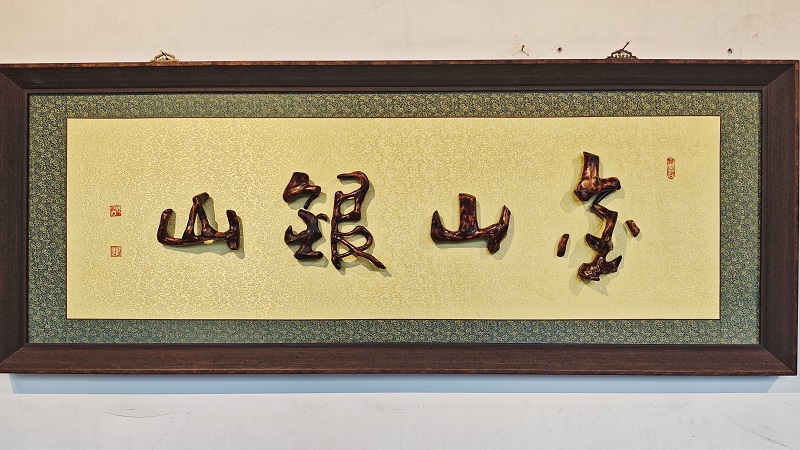 金山銀山